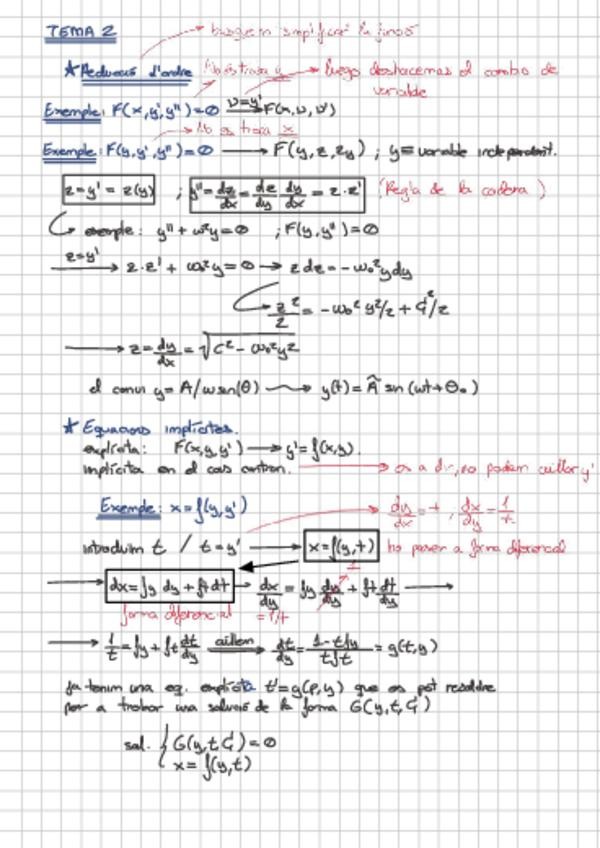 TEMA 2 → busquem simplificar la funció
★ Reducció d'ordre No es troba y → luego deshacemos el cambio de
variable
Exemple: F(x,y',y'')=0 v=y' → F(x,v,v')
→ No es troba x
Exemple: F(y,y',y'')=0 → F(y,z,zy) ; y ≡ variable independent.
z=y'=z(y) ; y''=dz/dx=dz/dy dy/dx=z·z' (Regla de la cadena)
exemple: y''+ω²y=0 ; F(y,y'')=0
z=y' → z·z'+ω₀²y=0 → z dz=-ω₀²y dy
z²/2=-ω₀²y²/2+C²/2
→ z=dy/dx=√C²-ω₀²y²
el canvi y=A/ω sin(θ) → y(t)=Ã sin(ωt+θ₀)
★ Equacions implícites.
explícita: F(x,y,y') → y'=f(x,y).
implícita en el cas contrari. → es a dir, no podem aïllar y'
Exemple: x=f(y,y') dy/dx=t, dx/dy=1/t
introduïm t / t=y' → x=f(y,t) ho passem a forma diferencial
→ dx=fy dy+ft dt → dx/dy=fy dy/dy+ft dt/dy →
forma diferencial =1/t 1
→ 1/t=fy+ft dt/dy aïllem → dt/dy=1-tfy/tft=g(t,y)
Ja tenim una eq. explícita t'=g(p,y) que es pot resoldre
per a trobar una solució de la forma G(y,t,C)
sol. { G(y,t,C)=0
x=f(y,t)